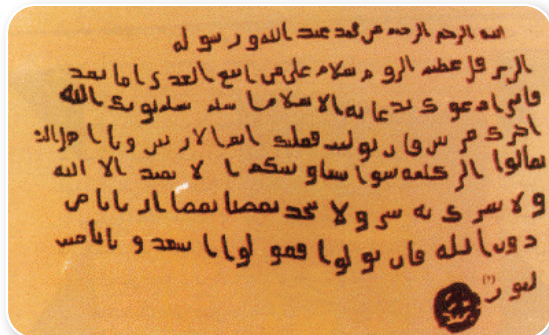 بسم الله الرحمن الرحيم من محمد عبد الله و رسوله
الى هرقل عظيم الروم سلام على من اتبع الهدى اما بعد
فانى ادعوك بدعاية الاسلام اسلم تسلم يوتك الله
اجرك مرتين فان توليت فعليك اثم الاريسين ويا اهل الكتب
تعالوا الى كلمة سوا بيننا وبينكم الا نعبد الا الله
ولا نشرك به شيا ولا يتخذ بعضنا بعضا اربابا من
دون الله فان تولوا فقولوا اشهدوا بانا مس
لمون (٢)